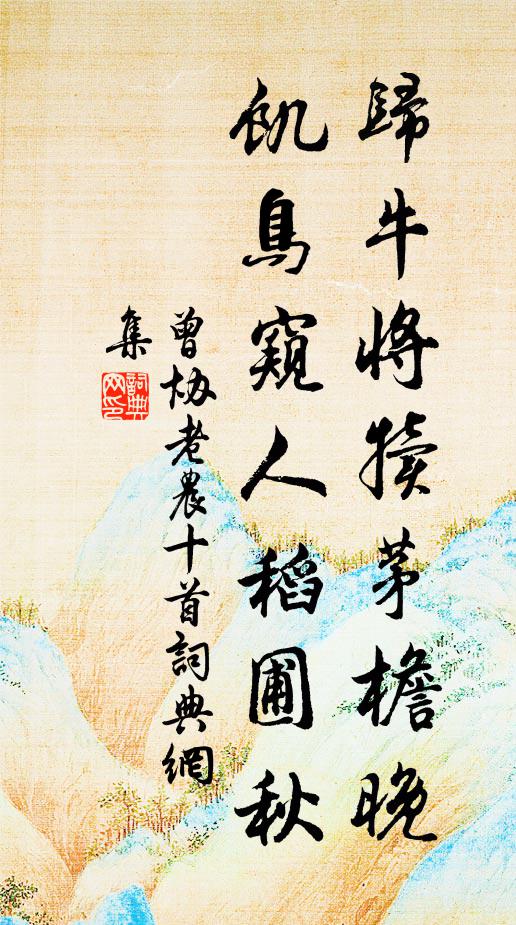 歸牛將犢茅檐晚
飢鳥窺人稻圃秋
曾協老農十首詞典網
集
詞典
网印